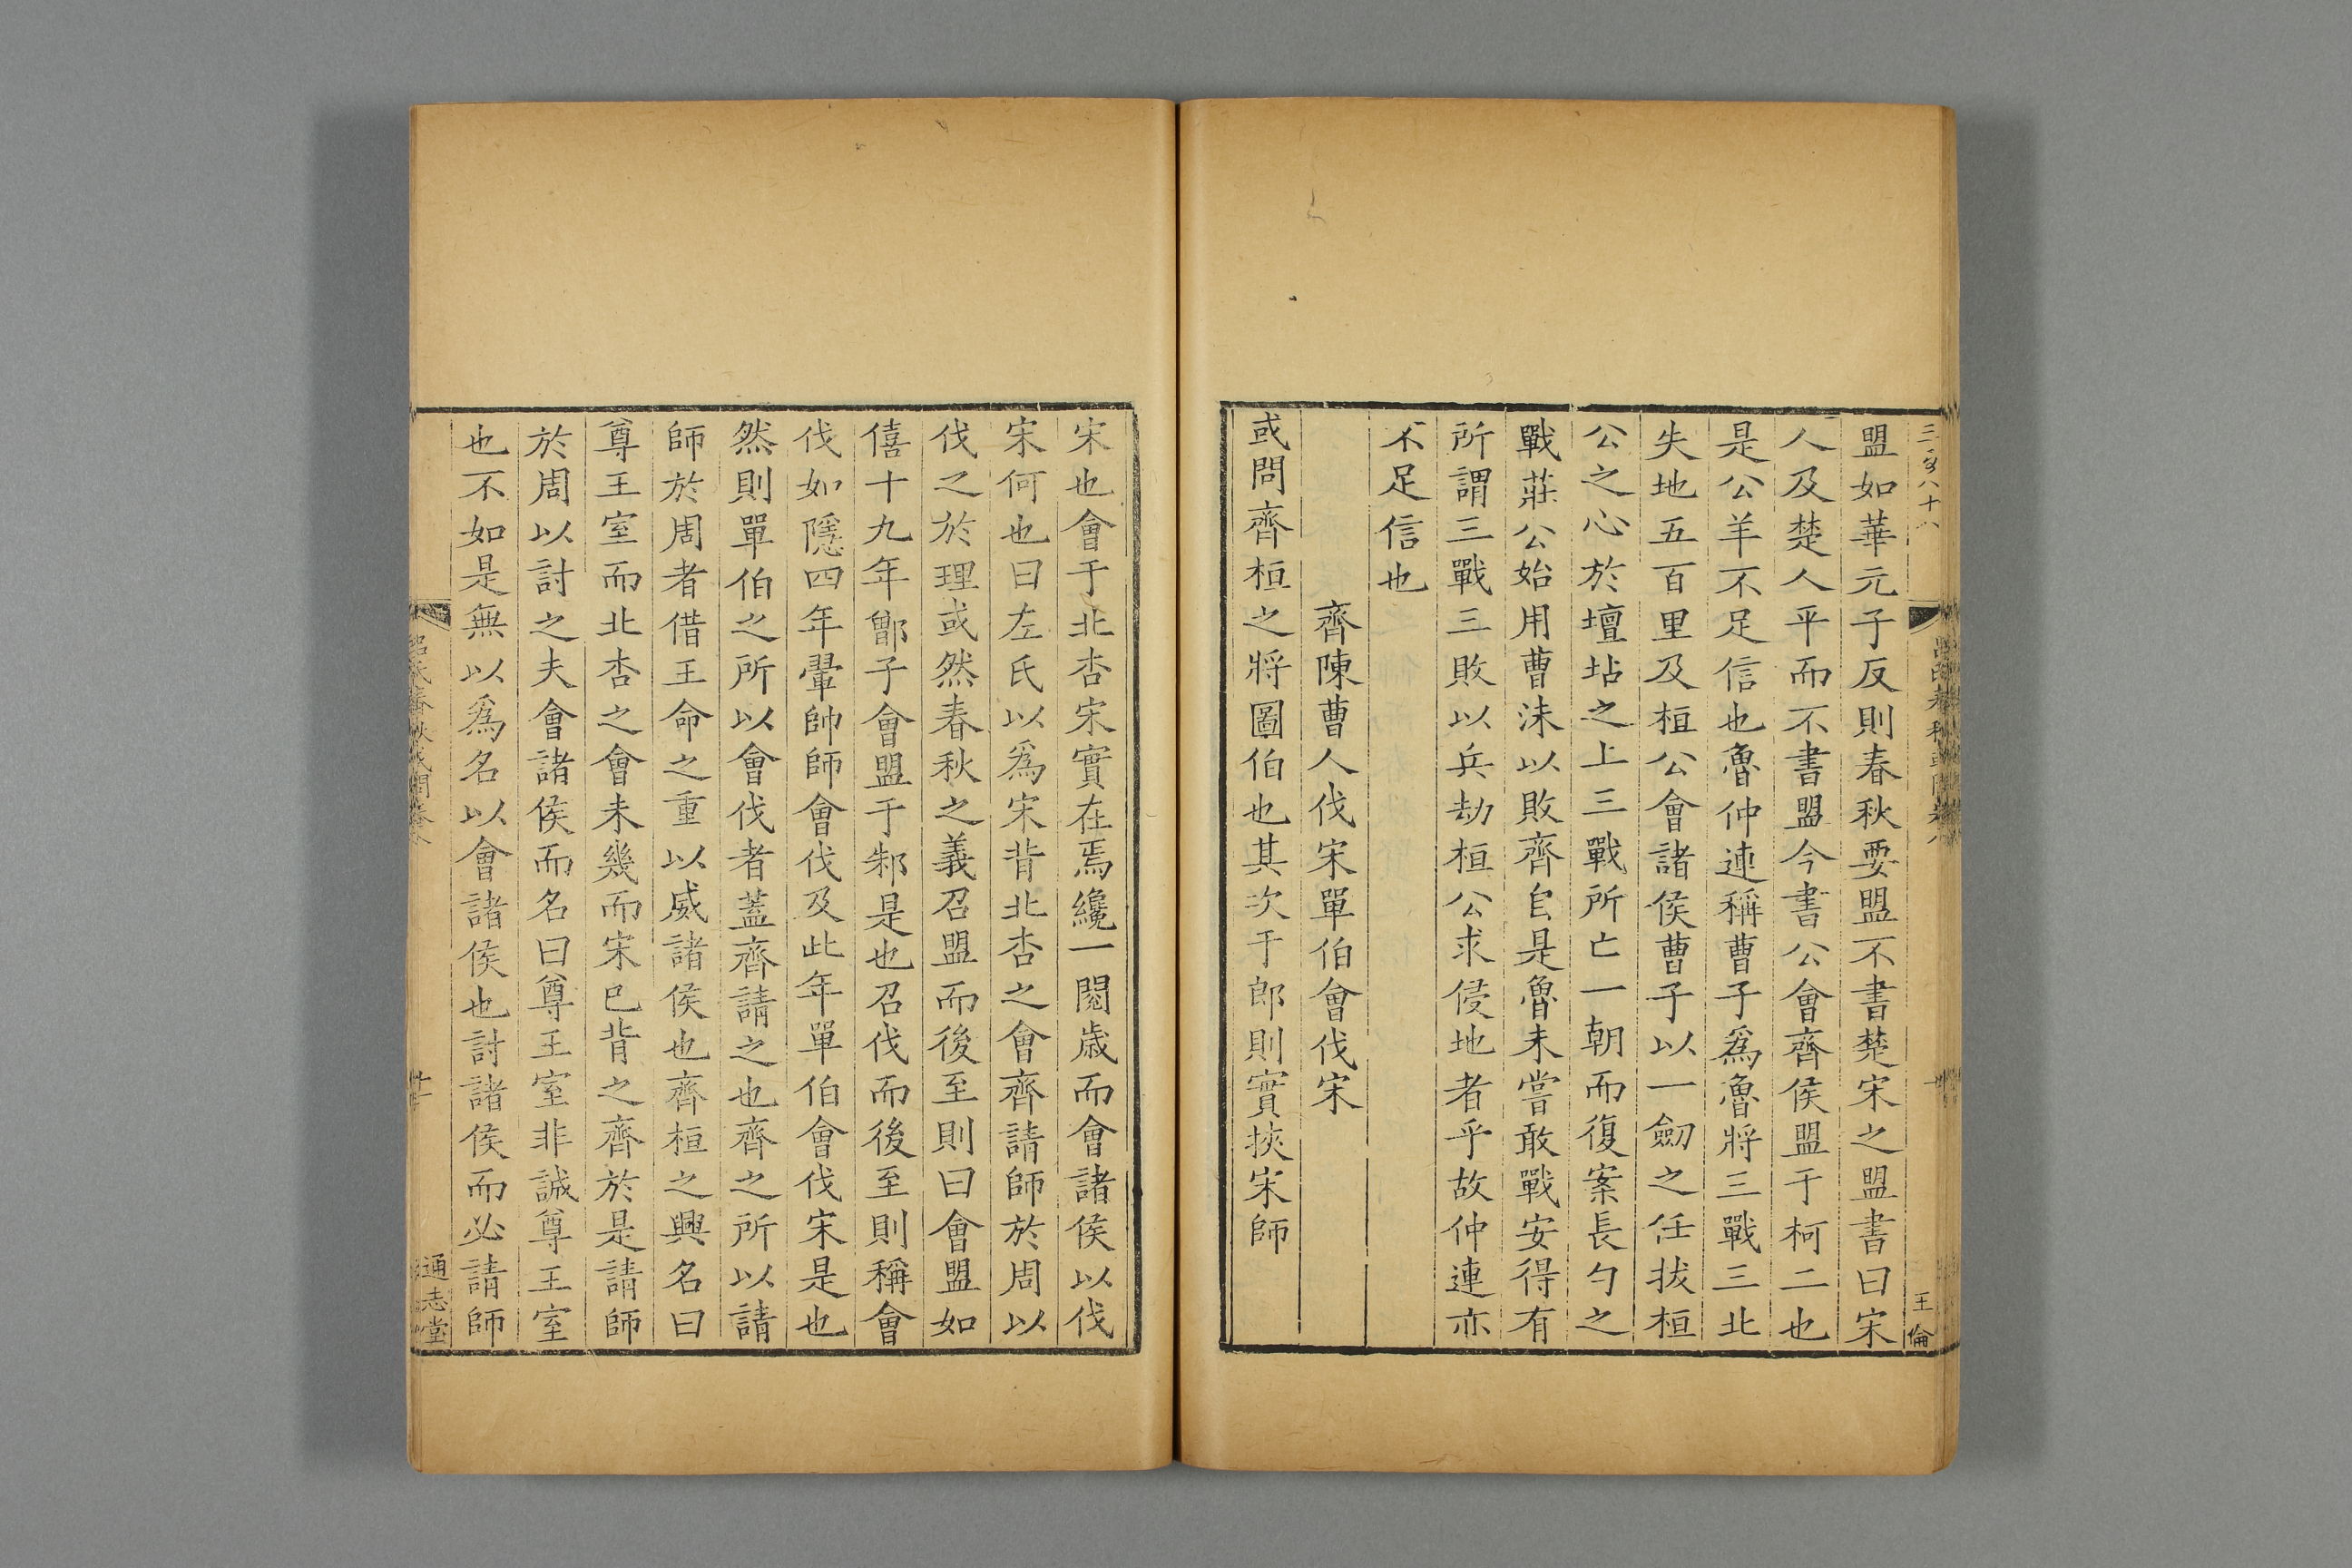 三百八十八
王倫
盟如華元子反則春秋要盟不書楚宋之盟書曰宋
人及楚人平而不書盟今書公會齊侯盟于柯二也
是公羊不足信也魯仲連稱曹子爲魯將三戰三北
失地五百里及桓公會諸侯曹子以一劒之任拔桓
公之心於壇坫之上三戰所亡一朝而復案長勺之
戰莊公始用曹沬以敗齊自是魯未嘗敢戰安得有
所謂三戰三敗以兵劫桓公求侵地者乎故仲連亦
不足信也
齊陳曹人伐宋單伯會伐宋
或問齊桓之將圖伯也其次于郎則實挾宋師
宋也會于北杏宋實在焉纔一閱歲而會諸侯以伐
宋何也曰左氏以爲宋背北杏之會齊請師於周以
伐之於理或然春秋之義召盟而後至則曰會盟如
僖十九年鄫子會盟于邾是也召伐而後至則稱會
伐如隱四年翬帥師會伐及此年單伯會伐宋是也
然則單伯之所以會伐者蓋齊請之也齊之所以請
師於周者借王命之重以威諸侯也齊桓之興名曰
尊王室而北杏之會未幾而宋已背之齊於是請師
於周以討之夫會諸侯而名曰尊王室非誠尊王室
也不如是無以爲名以會諸侯也討諸侯而必請師
呂氏春秋或問卷八
通志堂